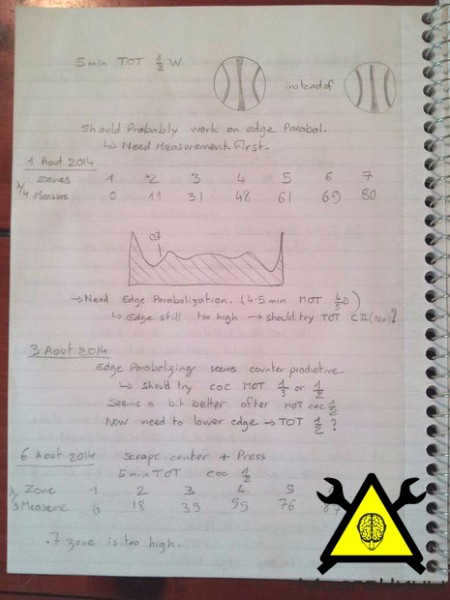 5 min TOT 1/2 W
instead of
Should Probably work on edge Parabol.
↳ Need Measurement First.
1 Aout 2014
Zones 1 2 3 4 5 6 7
Measure 0 11 31 48 61 69 80
→ Need Edge Parabolization. (4.5 min MOT
↳ Edge still too high → should try TOT
3 Aout 2014
Edge Parabolizing seems counter productive.
↳ should try COC MOT 1/3 or 1/2
Seems a bit better after MOT COC 1/2
Now need to lower edge → TOT 1/2 ?
6 Aout 2014 Scrape center + Press
5 min TOT COC 1/2
Zone 1 2 3 4 5
Measure 0 18 39 55 76
.7 zone is too high.